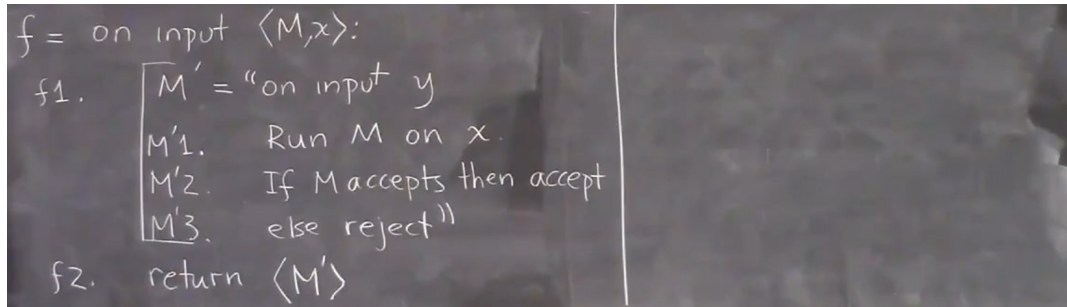 f = on input ⟨M,x⟩:
f1. M' = "on input y
M'1. Run M on x.
M'2. If M accepts then accept
M'3. else reject"
f2. return ⟨M'⟩